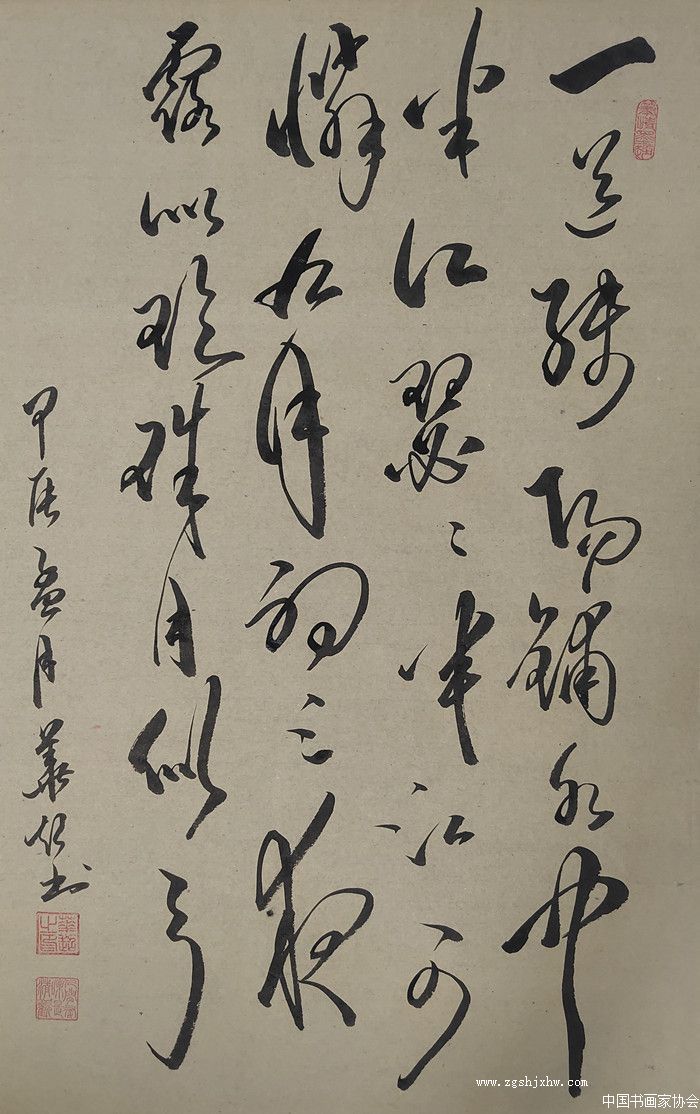 一道殘陽鋪水中
半江瑟〻半江可
憐九月初三夜
露似珍珠月似弓
甲辰孟月華书
www.zgshjxhw.com
中国书画家协会